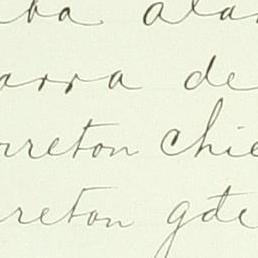 ba alam
arra de
rreton chie
rreton gde